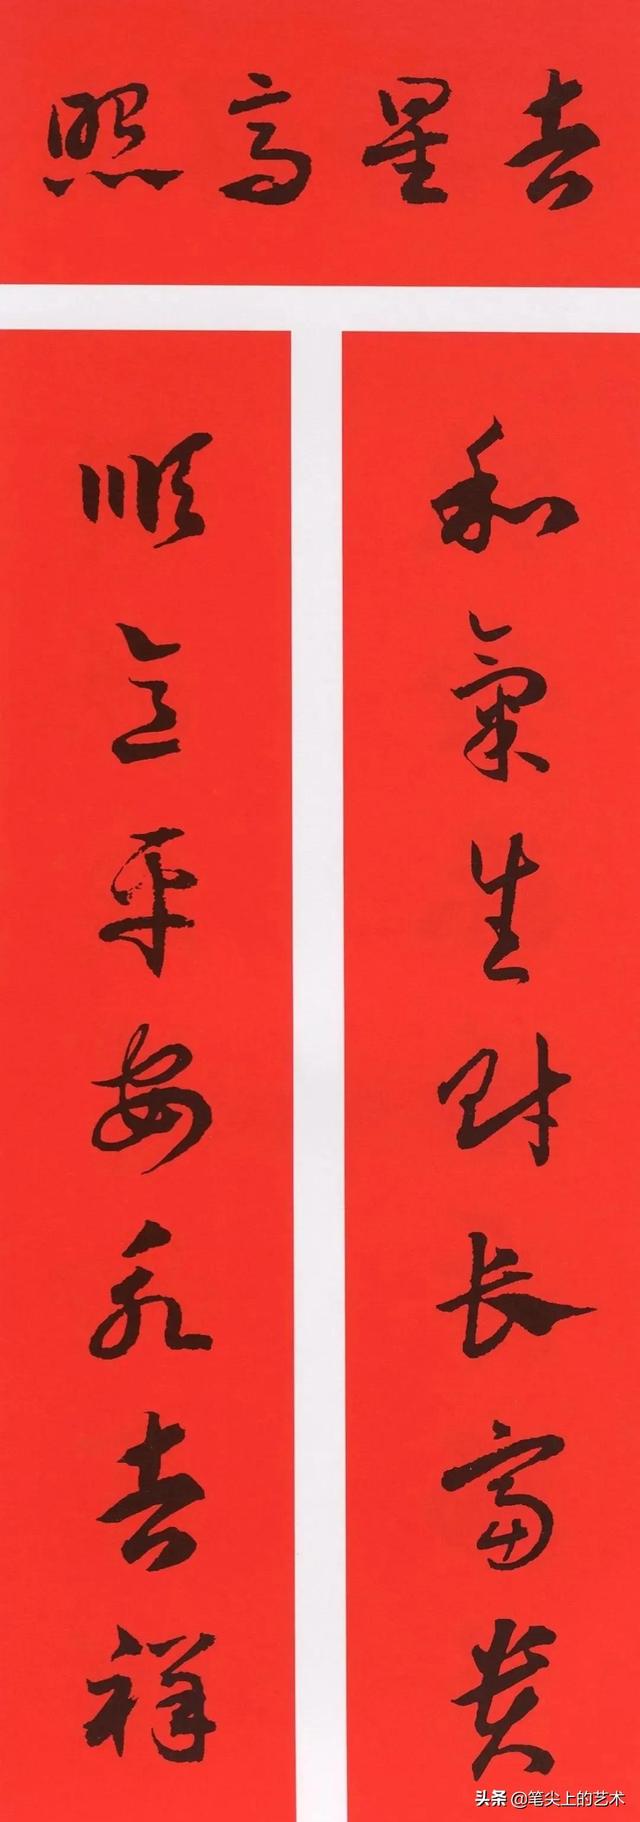 吉星高照
和氣生财长富贵
顺意平安永吉祥
头条 @笔尖上的艺术